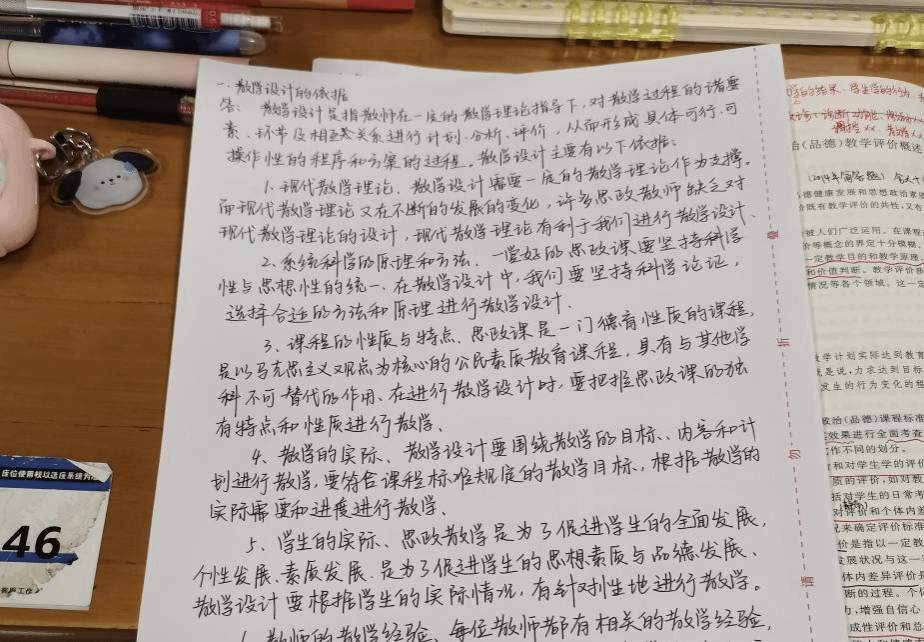 一、教学设计的依据
答：教学设计是指教师在一定的教学理论指导下，对教学过程的诸要
素、环节及相互关系进行计划、分析、评价，从而形成具体可行、可
操作性的程序和方案的过程。教学设计主要有以下依据：
1、现代教学理论、教学设计需要一定的教学理论作为支撑。
而现代教学理论又在不断的发展的变化，许多思政教师缺乏对
现代教学理论的设计，现代教学理论有利于我们进行教学设计、
2、系统科学的原理和方法、一堂好的思政课要坚持科学
性与思想性的统一、在教学设计中，我们要坚持科学论证，
选择合适的方法和原理进行教学设计、
3、课程的性质与特点、思政课是一门德育性质的课程，
是以马克思主义观点为核心的公民素质教育课程，具有与其他学
科不可替代的作用、在进行教学设计时，要把握思政课的独
有特点和性质进行教学、
4、教学的实际、教学设计要围绕教学的目标、内容和计
划进行教学，要符合课程标准规定的教学目标，根据教学的
实际需要和进度进行教学、
5、学生的实际、思政教学是为了促进学生的全面发展，
个性发展、素质发展、是为了促进学生的思想素质与品德发展、
教学设计要根据学生的实际情况，有针对性地进行教学。
教师的教学经验、每位教师都有相关的教学经验，
叠
折
勿
请
座位使用权以选座系统为
46
治（品德）教学评价概述
（2014年简答题）
德健康发展和思想政治素质
价既有教学评价的共性，又有
被人们广泛运用。在课程
价等概念的界定十分模糊，
一定教学目的和教学原理，
和价值判断。教学评价
情况等各个领域。这一定
教学计划实际达到教育
就是说，力求达到目标
发生的行为变化的程
政治（品德）课程标准
效果进行全面考查
作不同的划分。
和对学生学的评价
质的评价，如对教
括对学生的日常考
对评价和个体内差
况来确定评价标准
价是指以一定教
发展状况与这一
体内差异评价是
断的过程。个
力，增强自信心
成性评价和总